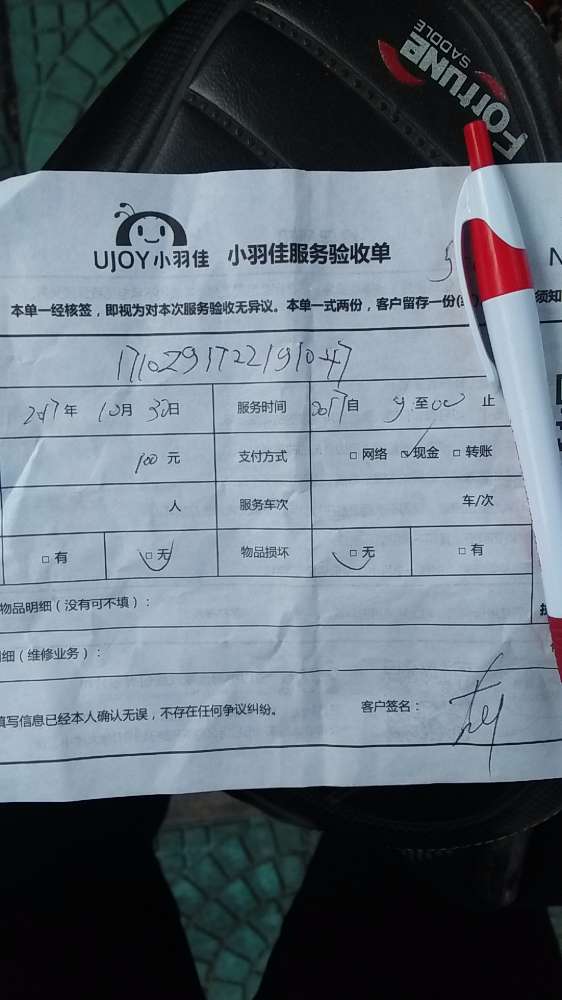 FORTUNE
SADDLE
UJOY小羽佳 小羽佳服务验收单
本单一经核签，即视为对本次服务验收无异议。本单一式两份，客户留存一份 须知
1710291722191047
年 10月 30日 服务时间 2017自 9 至 止
100 元 支付方式 □ 网络 ☑现金 □ 转账
人 服务车次 车/次
□ 有 □ 无 物品损坏 □ 无 □ 有
物品明细（没有可不填）：
细（维修业务）：
填写信息已经本人确认无误，不存在任何争议纠纷。 客户签名：